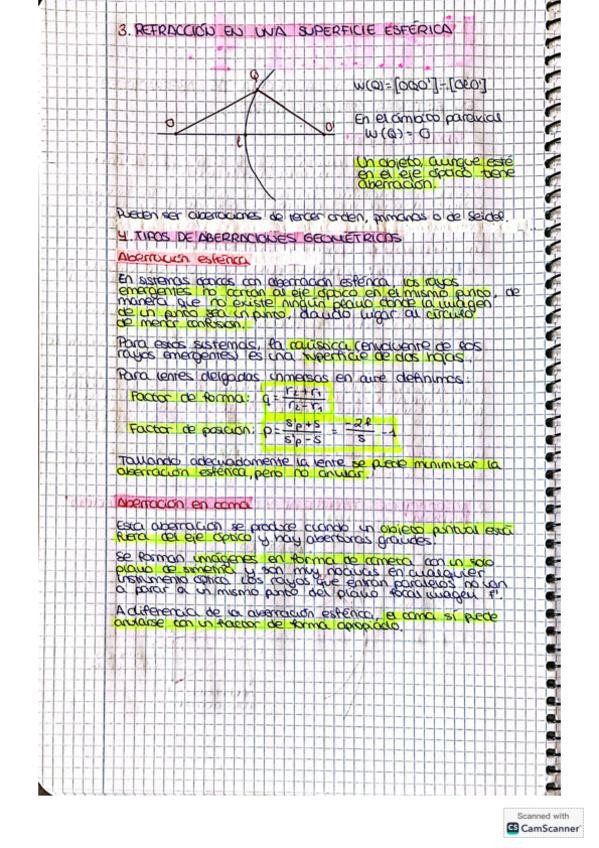 3. REFRACCIÓN EN UNA SUPERFICIE ESFÉRICA
Q
O
O'
W(Q)=[OQO']-[OCO']
En el ámbito paraxial
W(Q) = 0
Un objeto, aunque esté
en el eje óptico tiene
aberración.
Pueden ser aberraciones de tercer orden, primarias o de Seidel.
4. TIPOS DE ABERRACIONES GEOMÉTRICAS
Aberración esférica
En sistemas ópticos con aberración esférica, los rayos
emergentes no cortan al eje óptico en el mismo punto, de
manera que no existe ningún plano donde la imagen
de un punto sea un punto, dando lugar al círculo
de menor confusión.
Para estos sistemas, la caústica (envolvente de los
rayos emergentes) es una superficie de dos hojas.
Para lentes delgadas inmersas en aire definimos:
Factor de forma: q = r₂+r₁ / r₂-r₁
Factor de posición: p = s'p+s / s'p-s = -2f / s - 1
Tallando adecuadamente la lente se puede minimizar la
aberración esférica, pero no anular.
Aberración en coma
Esta aberración se produce cuando un objeto puntual está
fuera del eje óptico y hay aberturas grandes.
Se forman imágenes en forma de cometa con un solo
plano de simetría y son muy nocivas en cualquier
instrumento óptico. Los rayos que entran paralelos no van
a parar a un mismo punto del plano focal imagen F'.
A diferencia de la aberración esférica, el coma sí puede
anularse con un factor de forma apropiado.
Scanned with
CS CamScanner